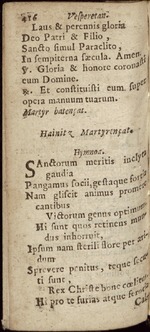 416 Vesperetan.
Laus & perennis gloria
Deo Patri & Filio,
Sancto simul Paraclito,
In sempiterna sæcula. Amen.
℣. Gloria & honore coronasti
eum Domine.
℟. Et constituisti eum super
opera manuum tuarum.
Martyr batençat.
Hainitz Martyrençat.
Hymna.
SAnctorum meritis inclyta
gaudia
Pangamus socii, gestaque fortia
Nam gliscit animus promere
cantibus
Victorum genus optimum
Hi sunt quos retinens mun-
dus inhorruit,
Ipsum nam sterili flore per
dum
Sprevere penitus, teque
ti sunt
Rex Christe bone
Hi pro te furias atque